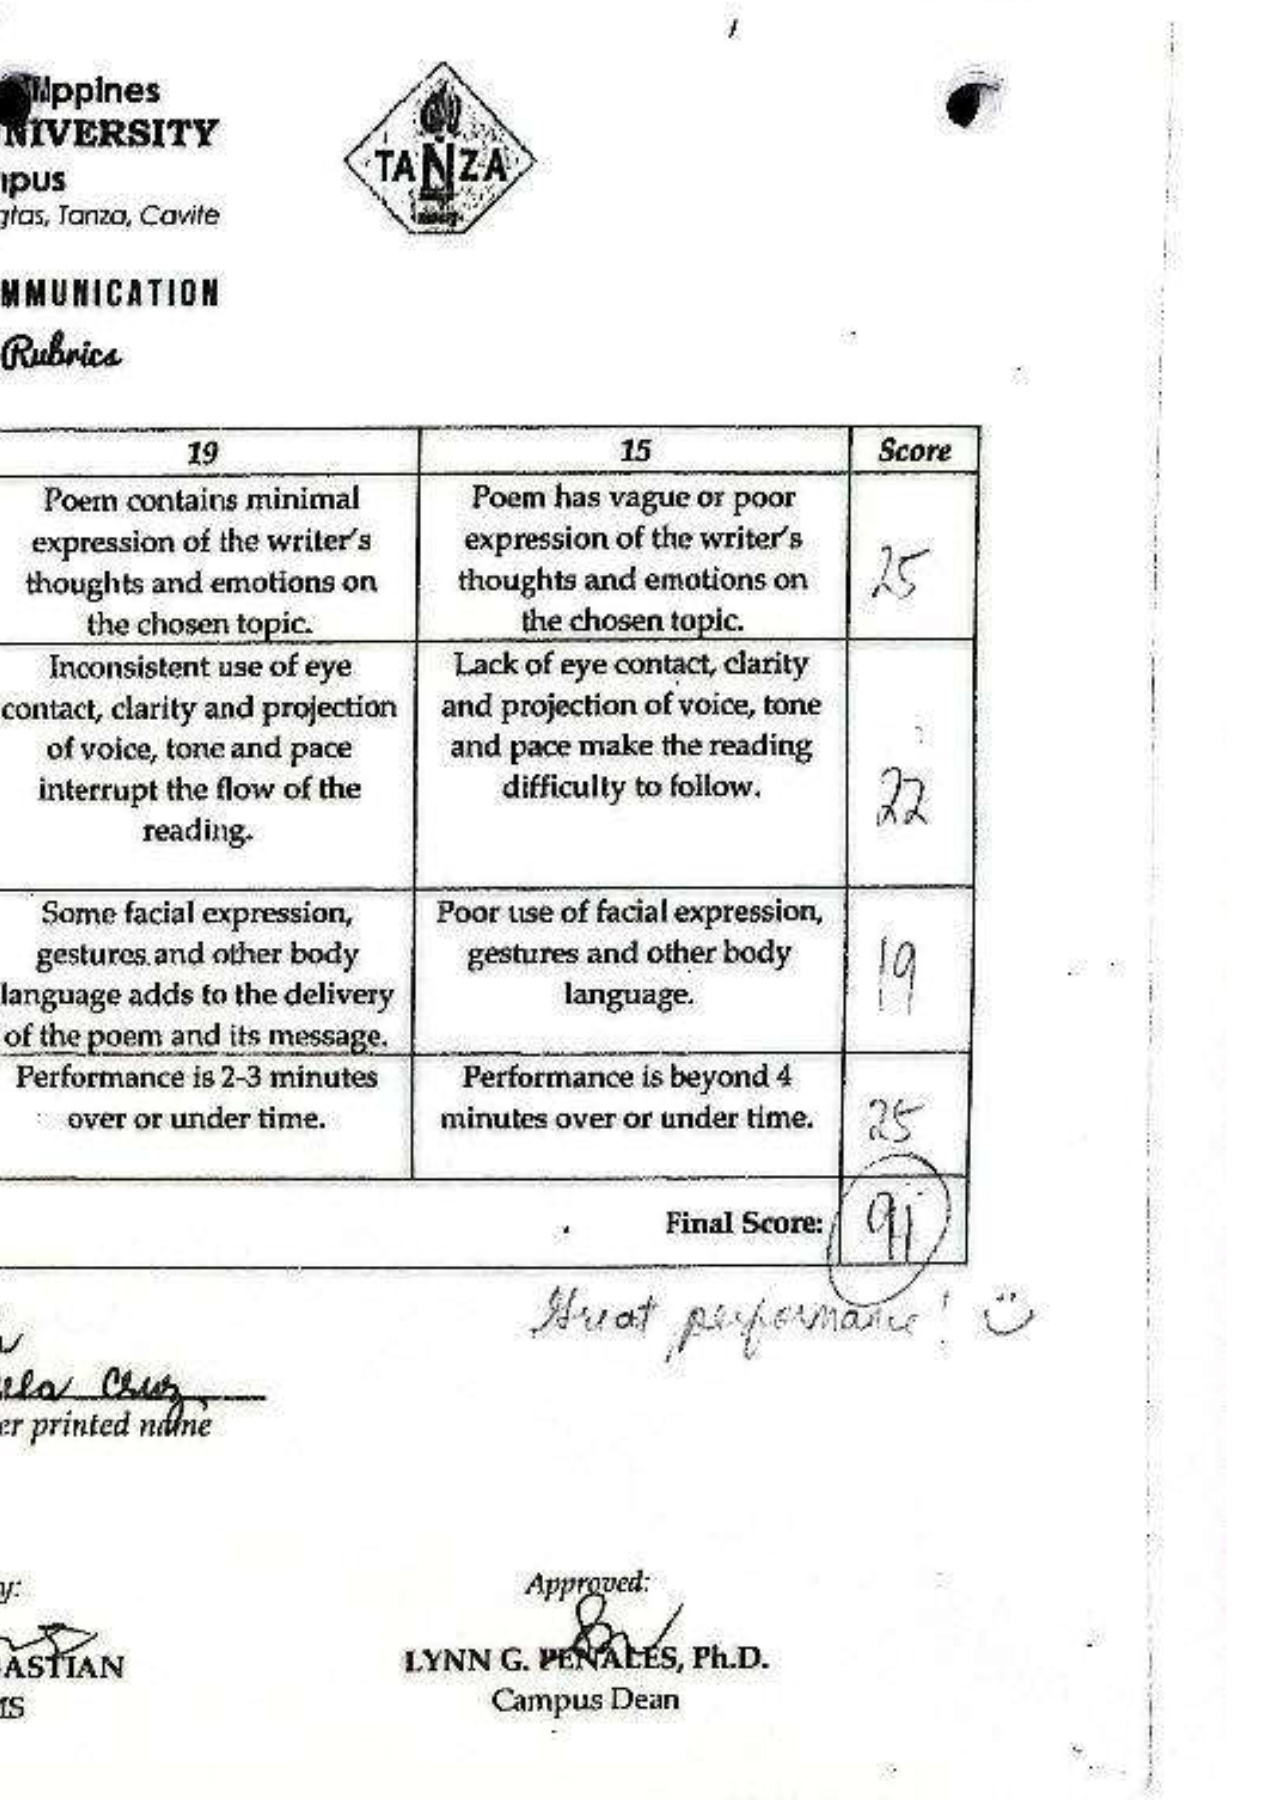 ilippines
NIVERSITY
npus
gtas, Tanza, Cavite
TANZA
MMUNICATION
Rubrics
19 15 Score
Poem contains minimal
expression of the writer's
thoughts and emotions on
the chosen topic.
Poem has vague or poor
expression of the writer's
thoughts and emotions on
the chosen topic.
25
Inconsistent use of eye
contact, clarity and projection
of voice, tone and pace
interrupt the flow of the
reading.
Lack of eye contact, clarity
and projection of voice, tone
and pace make the reading
difficulty to follow.
22
Some facial expression,
gestures and other body
language adds to the delivery
of the poem and its message.
Poor use of facial expression,
gestures and other body
language.
19
Performance is 2-3 minutes
over or under time.
Performance is beyond 4
minutes over or under time.
25
Final Score: 91
Great performance!
ela Cruz
er printed name
y:
ASTIAN
MS
Approved:
LYNN G. PENALES, Ph.D.
Campus Dean